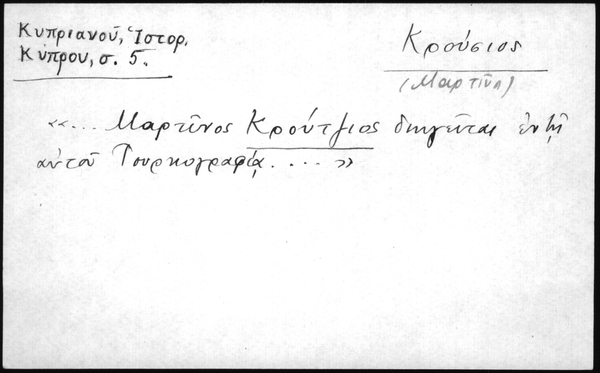 Κυπριανοῦ, Ἱστορ.
Κύπρου, σ. 5.
Κρούσιος
(Μαρτῖν)
«... Μαρτῖνος Κρούτζιος διηγεῖται ἐν τῇ
αὐτοῦ Τουρκογραφίᾳ .... »